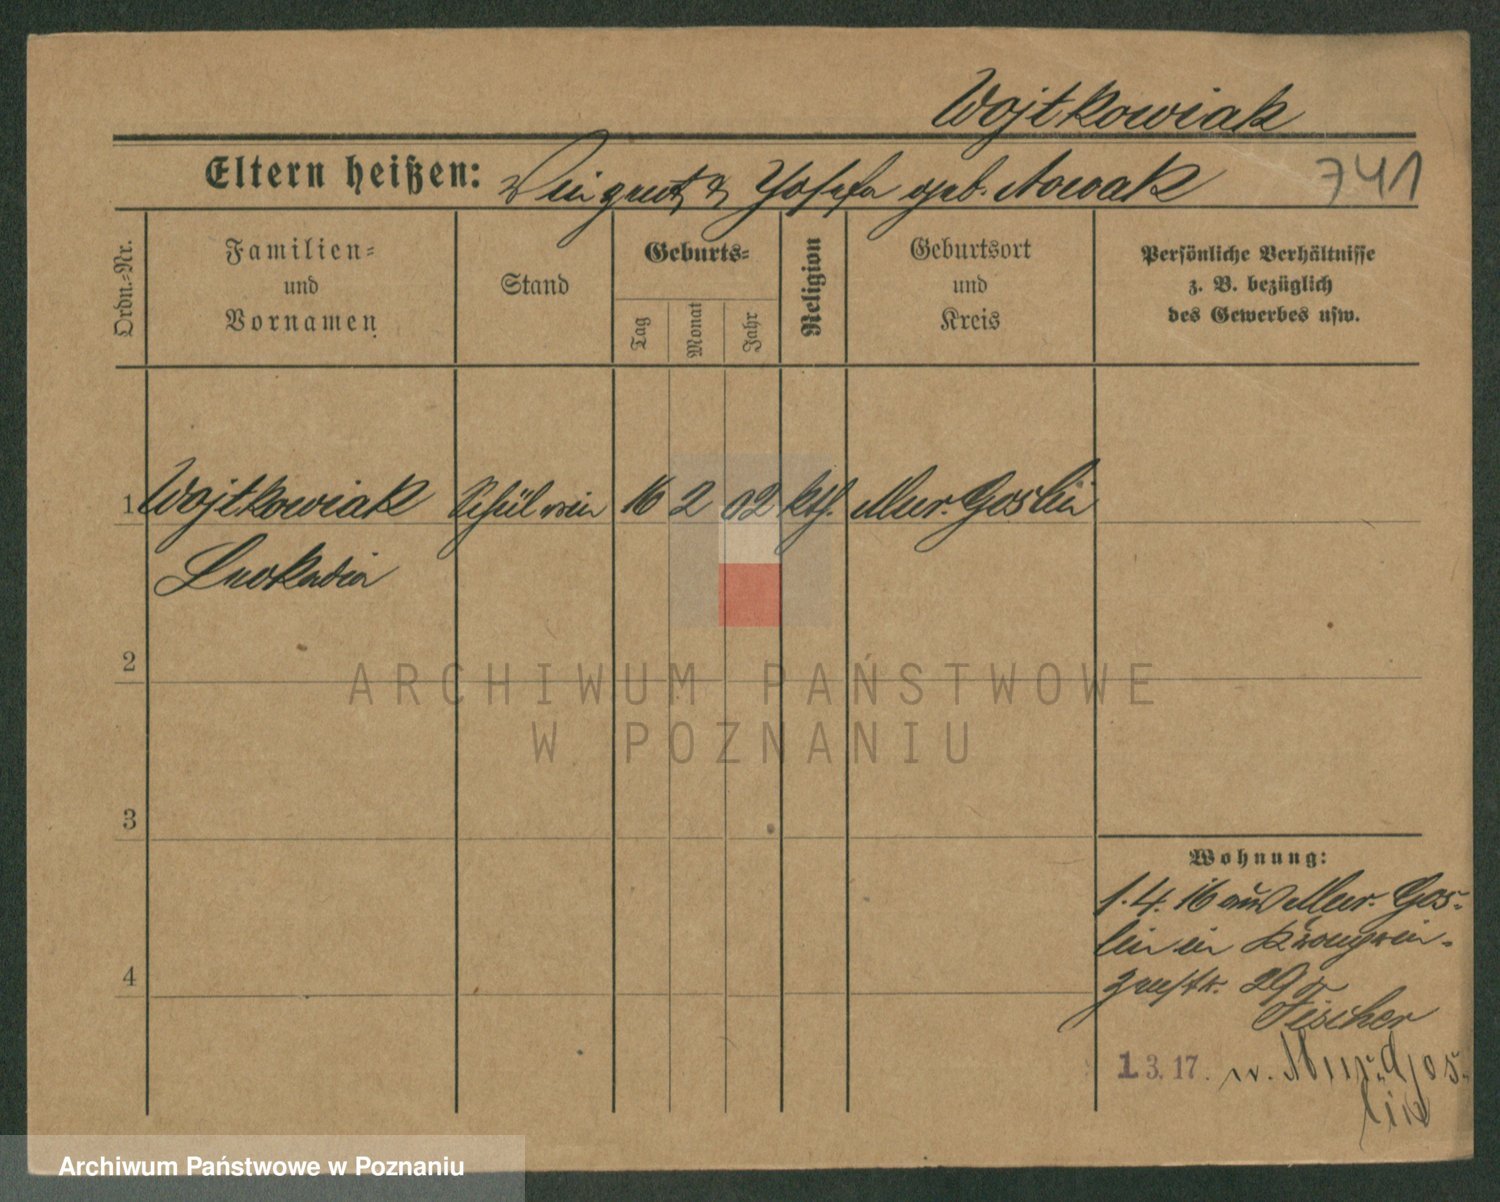 Wojtkowiak
Eltern heißen: Vinzent & Josefa geb. Nowak
741
Ordn.-Nr.
Familien-
und
Vornamen
Stand
Geburts-
Tag
Monat
Jahr
Religion
Geburtsort
und
Kreis
Persönliche Verhältnisse
z. B. bezüglich
des Gewerbes usw.
1 Wojtkowiak Schülerin 16 2 02 kth. Mur. Goslin
Leokadia
2
ARCHIWUM PAŃSTWOWE
W POZNANIU
3
4
Wohnung:
1.4.16 aus Mur. Gos-
lin in Kronprin-
zenstr. 29
Fischer
1.3.17. n. Mur. Gos-
lin
Archiwum Państwowe w Poznaniu